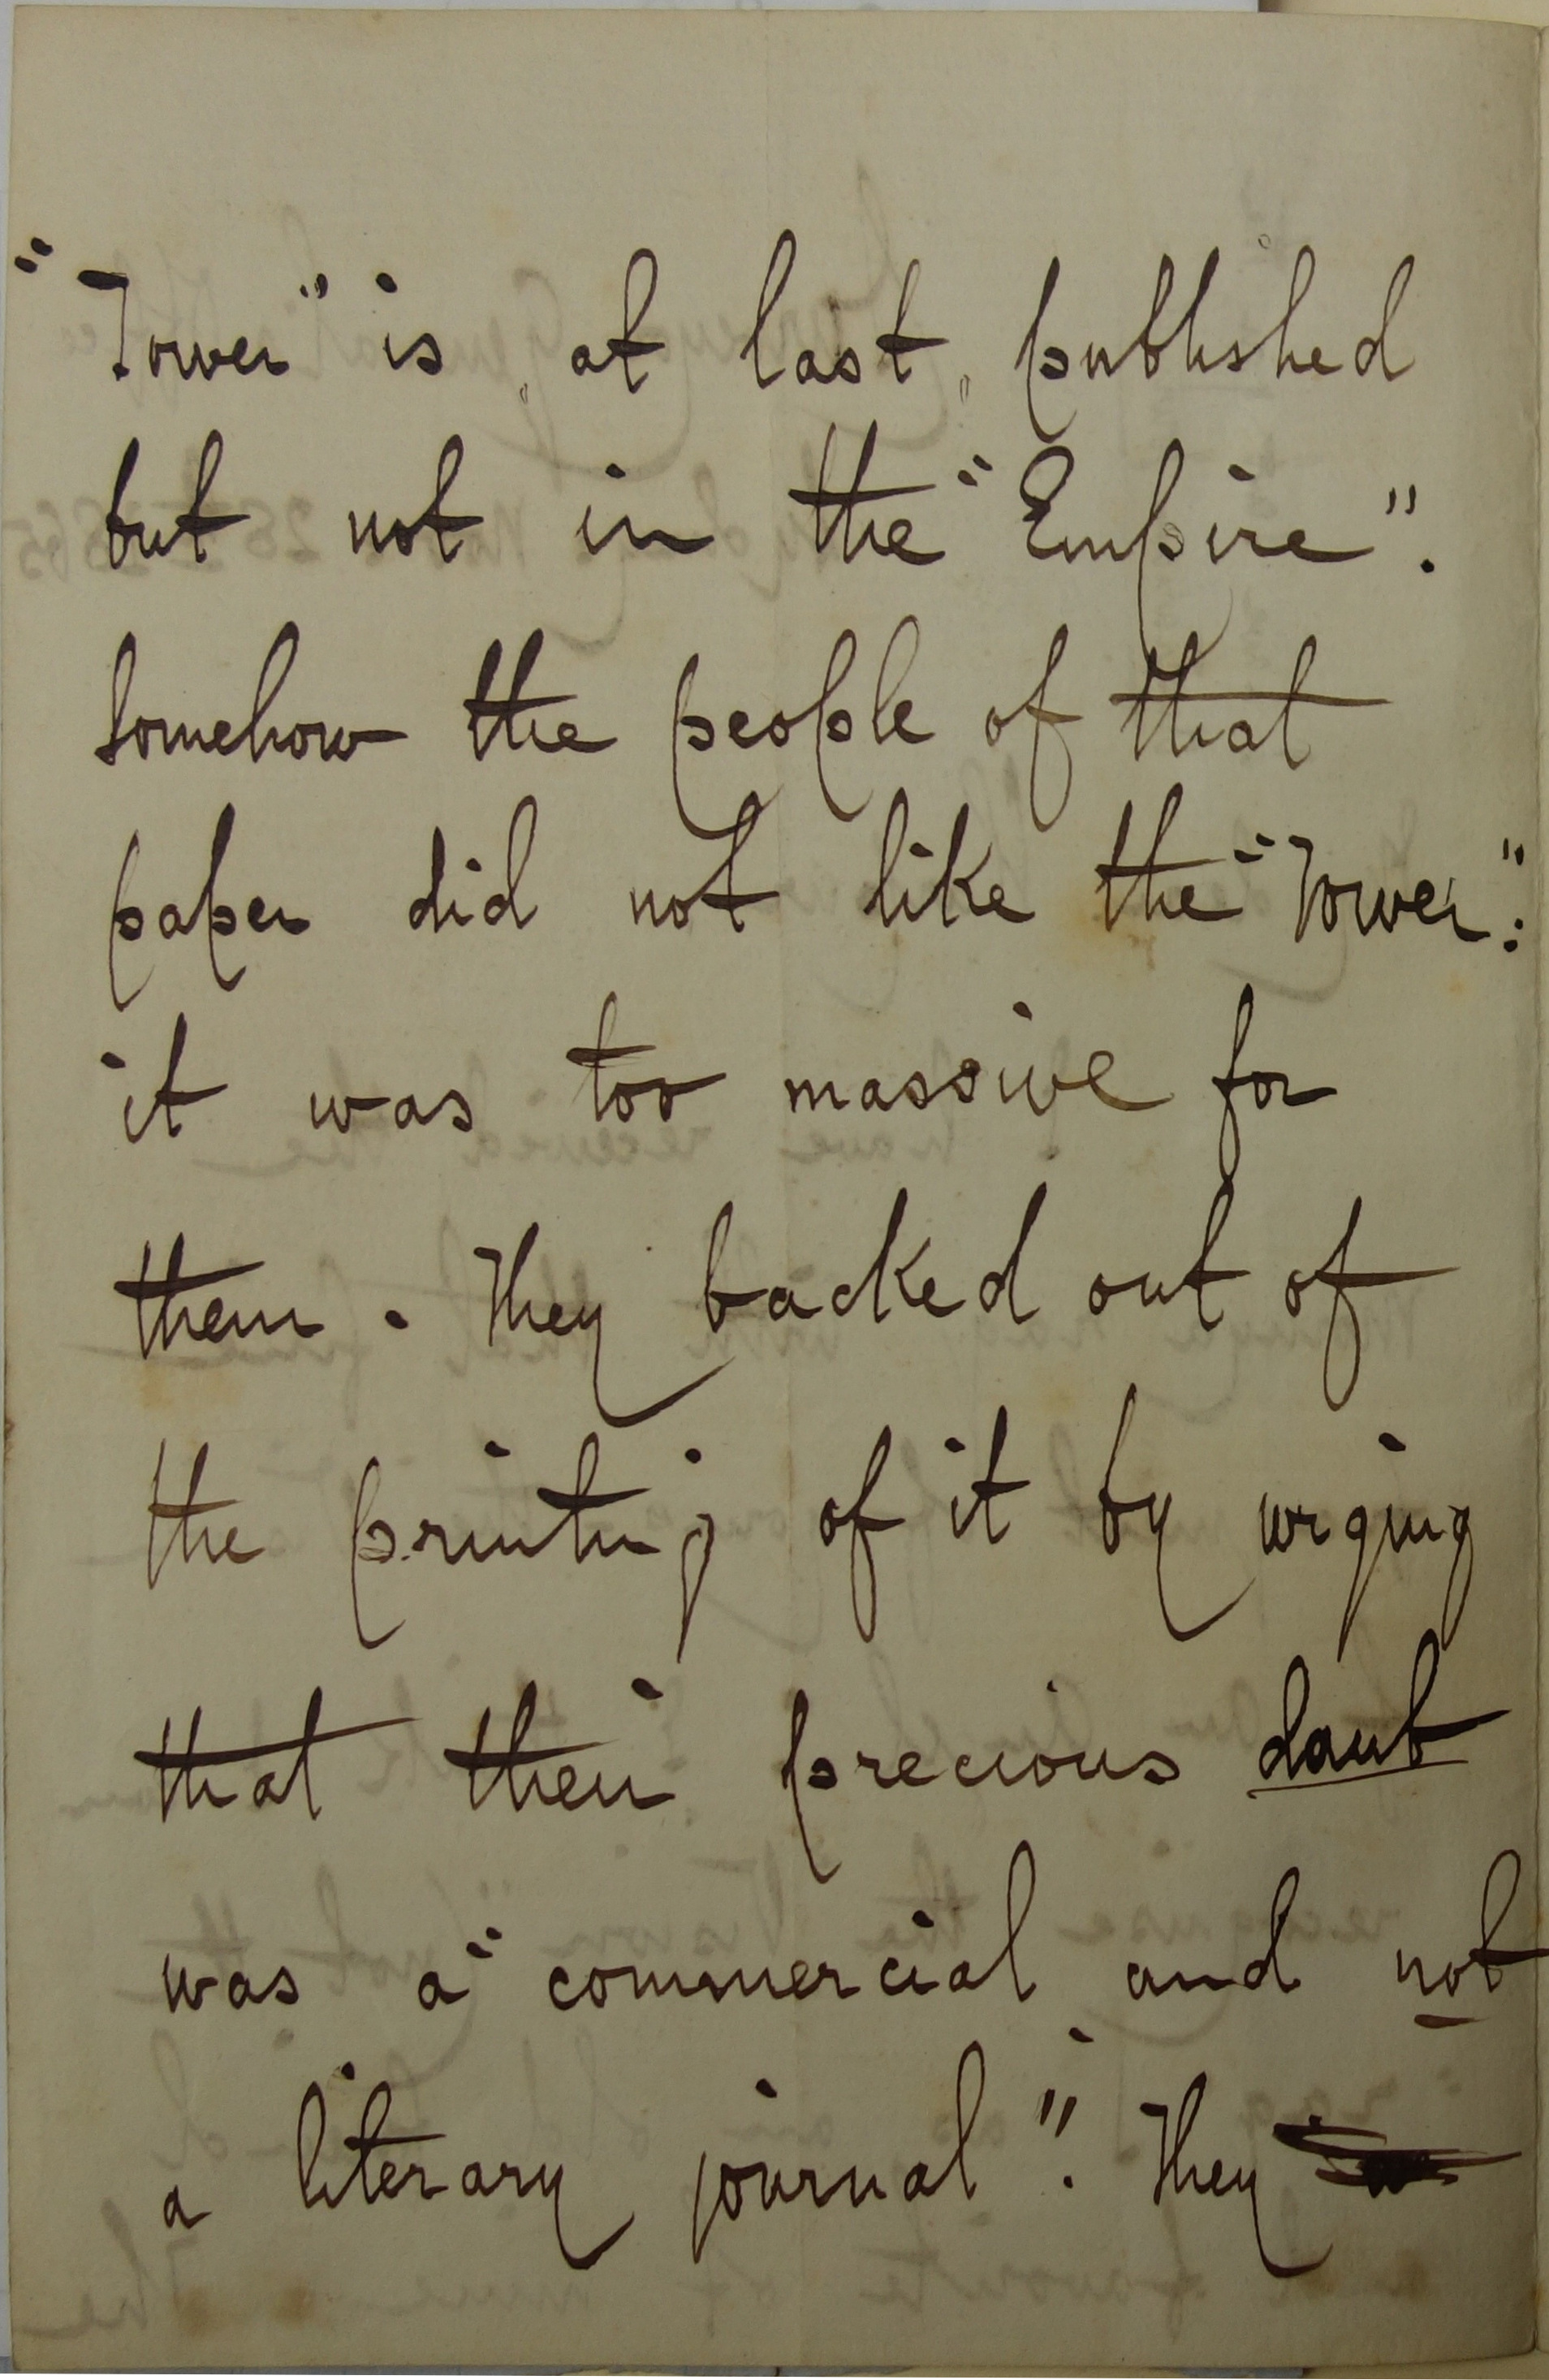 "Tower" is "at last" published
but not in the "Empire".
Somehow the people of that
paper did not like the "Tower":
it was too massive for
them. They backed out of
the printing of it by urging
that their precious daub
was a "commercial and not
a literary journal". They